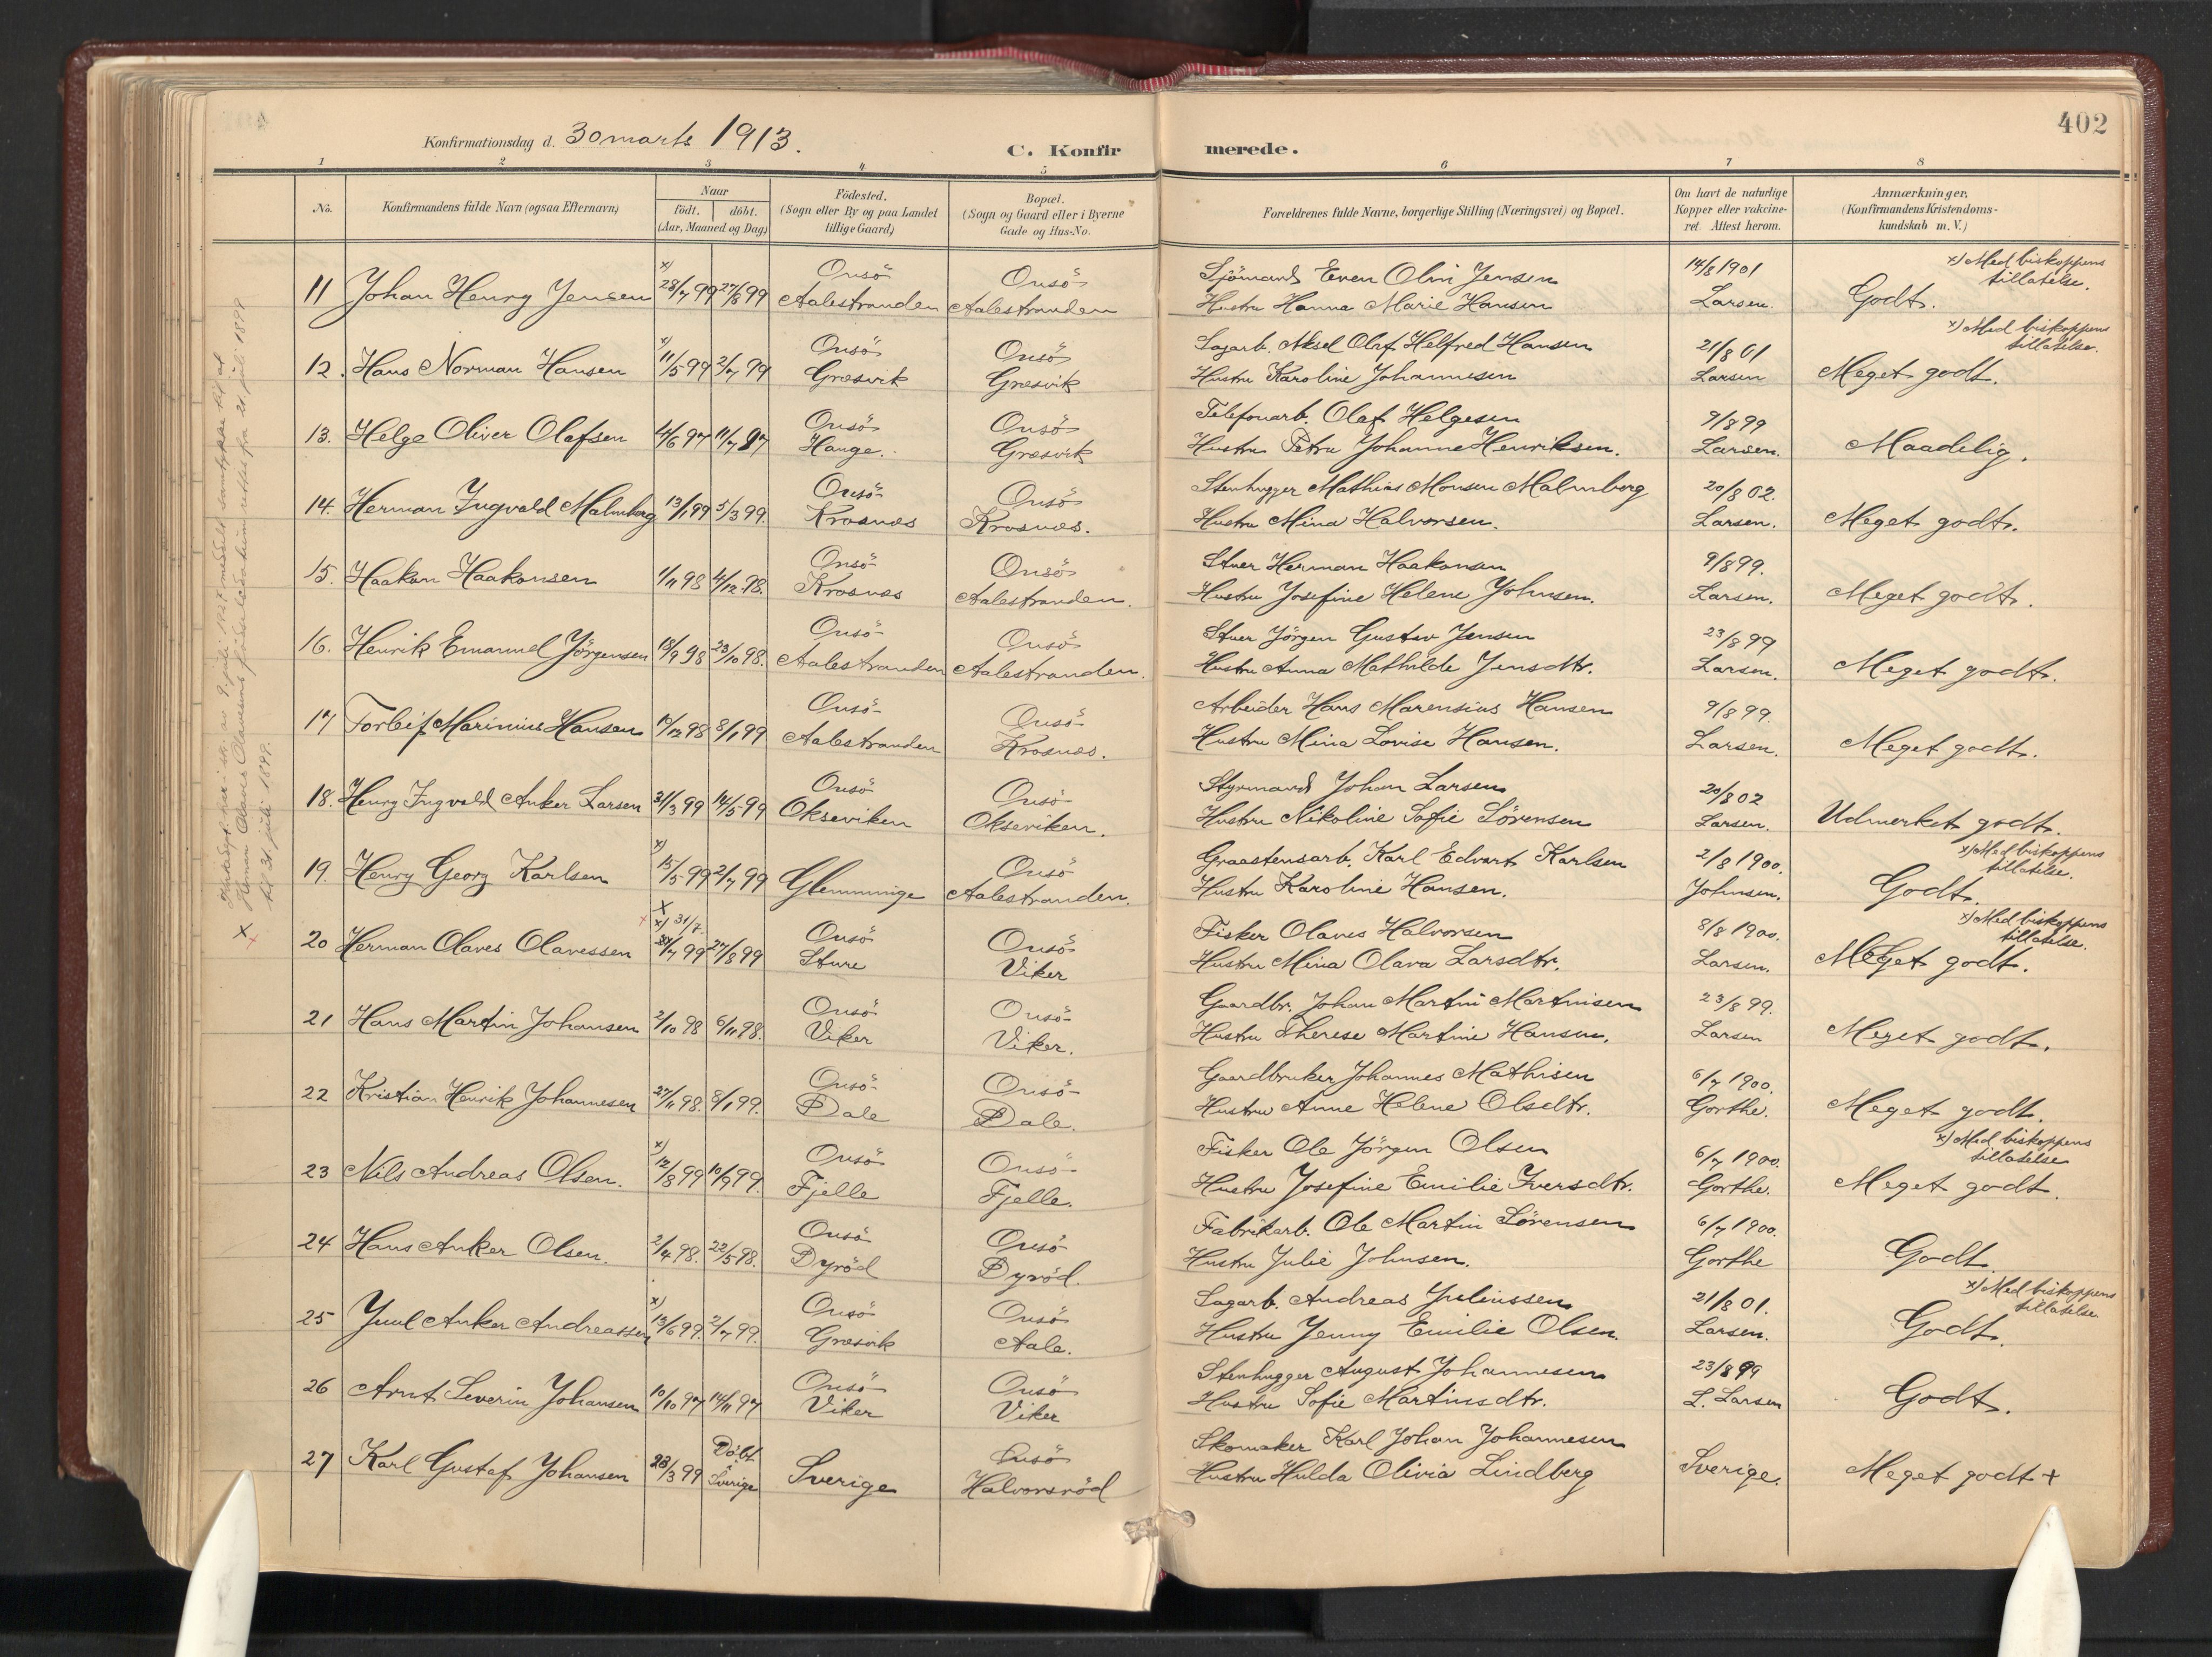 402
Konfirmationsdag d. 30 marts 1913.
C. Konfirmerede.
1 2 3 4 5 6 7 8
No.
Konfirmandens fulde Navn (ogsaa Efternavn)
Naar
födt. döbt.
(Aar, Maaned og Dag)
Födested.
(Sogn eller By og paa Landet
tillige Gaard)
Bopæl.
(Sogn og Gaard eller i Byerne
Gade og Hus-No.
Forældrenes fulde Navne, borgerlige Stilling (Næringsvei) og Bopæl.
Om havt de naturlige
Kopper eller vakcine-
ret. Attest herom.
Anmærkninger,
(Konfirmandens Kristendoms-
kundskab m. V.)
x) Med biskoppens
tillatelse.
x) Onsö Onsö Sjömand Even Olin Jensen 14/8 1901
11 Johan Henry Jensen 28/7 99 27/8 99 Aalestranden Aalestranden Hustru Hanna Marie Hansen Larsen. Godt.
x) Med biskoppens
tillatelse.
x) Onsö Onsö Sagarb. Aksel Olaf Helfred Hansen 21/8 01
12. Hans Norman Hansen 11/5 99 2/7 99 Græsvik Græsvik Hustru Karoline Johannesen Larsen Meget godt.
Onsö Onsö Telefonarb. Olaf Helgesen 9/8 99
13. Helge Oliver Olafsen 4/6 97 11/7 97 Hauge. Græsvik Hustru Petra Johanne Henriksen. Larsen. Maadelig.
Onsö Onsö Stenhugger Mathias Monsen Malmberg 20/8 02.
14. Herman Ingvald Malmberg 13/1 99 5/3 99. Krosnæs Krosnæs. Hustru Mina Halvorsen. Larsen. Meget godt.
Onsö Onsö Stuer Herman Haakonsen 9/8 99.
15. Haakon Haakonsen 1/11 98 4/12 98. Krosnæs Aalestranden. Hustru Josefine Helene Johnsen. Larsen. Meget godt.
Onsö Onsö Stuer Jörgen Gustav Jensen 23/8 99
16. Henrik Emanuel Jörgensen 18/9 98 23/10 98. Aalestranden Aalestranden. Hustru Anna Mathilde Jensdtr. Larsen. Meget godt.
Onsö Onsö Arbeider Hans Marensius Hansen 9/8 99.
17 Torleif Marinius Hansen 17/12 98 8/1 99 Aalestranden Krosnæs. Hustru Mina Lovise Hansen. Larsen. Meget godt.
Onsö Onsö Styrmand Johan Larsen 20/8 02
18. Henry Ingvald Anker Larsen 31/3 99 14/5 99 Okseviken Okseviken. Hustru Nikoline Sofie Sörensen Larsen. Udmerket godt.
x) Med biskoppens
tillatelse.
x) Onsö Graastensarb. Karl Edvart Karlsen 2/8 1900.
19. Henry Georg Karlsen 15/5 99 2/7 99 Glemminge Aalestranden. Hustru Karoline Hansen. Johnsen. Godt.
x) Med biskoppens
tillatelse.
X
x) 31/7. Onsö Onsö Fisker Olaves Halvorsen 8/8 1900.
20 Herman Olaves Olavessen 99 27/8 99 Sture Viker Hustru Mina Olava Larsdtr. Larsen. Meget godt.
Onsö Onsö Gaardbr. Johan Martin Martinisen 23/8 99.
21 Hans Martin Johansen 2/10 98 6/11 98. Viker Viker. Hustru Therese Martine Hansen. Larsen Meget godt.
Onsö Onsö Gaardbruker Johannes Mathisen 6/7 1900.
22 Kristian Henrik Johannesen 27/11 98. 8/1 99. Dale Dale. Hustru Anne Helene Olsdtr. Gorthe. Meget godt.
x) Med biskoppens
tillatelse
x) Onsö Onsö Fisker Ole Jörgen Olsen 6/7 1900.
23 Nils Andreas Olsen. 12/8 99 10/9 99. Fjelle Fjelle. Hustru Josefine Emilie Iversdtr. Gorthe. Meget godt.
Onsö Onsö Fabrikarb. Ole Martin Sörensen 6/7 1900.
24 Hans Anker Olsen. 2/4 98. 22/5 98. Dyröd Dyröd. Hustru Julie Johnsen. Gorthe Godt.
x) Med biskoppens
tillatelse.
x) Onsö Onsö Sagarb. Andreas Juliussen 21/8 01.
25 Juul Anker Andreassen 13/6 99. 2/7 99. Græsvik Aale. Hustru Jenny Emilie Olsen. Larsen. Godt.
Onsö Onsö Stenhugger August Johannesen 23/8 99
26 Arnt Severin Johansen 10/10 97 14/11 97 Viker Viker Hustru Sofie Martinsdtr. L. Larsen Godt.
Döbt. Onsö Skomaker Karl Johan Johannesen
27 Karl Gustaf Johansen 28/3 99 i Sverige Sverige Halvorsröd Hustru Hulda Olivia Lindberg Sverige. Meget godt +
av 9. juli 1927 meddelt samtykke til at
X Herman Olaus Olavsens födselsdatum rettes fra 21. juli 1899
til 31. juli 1899.